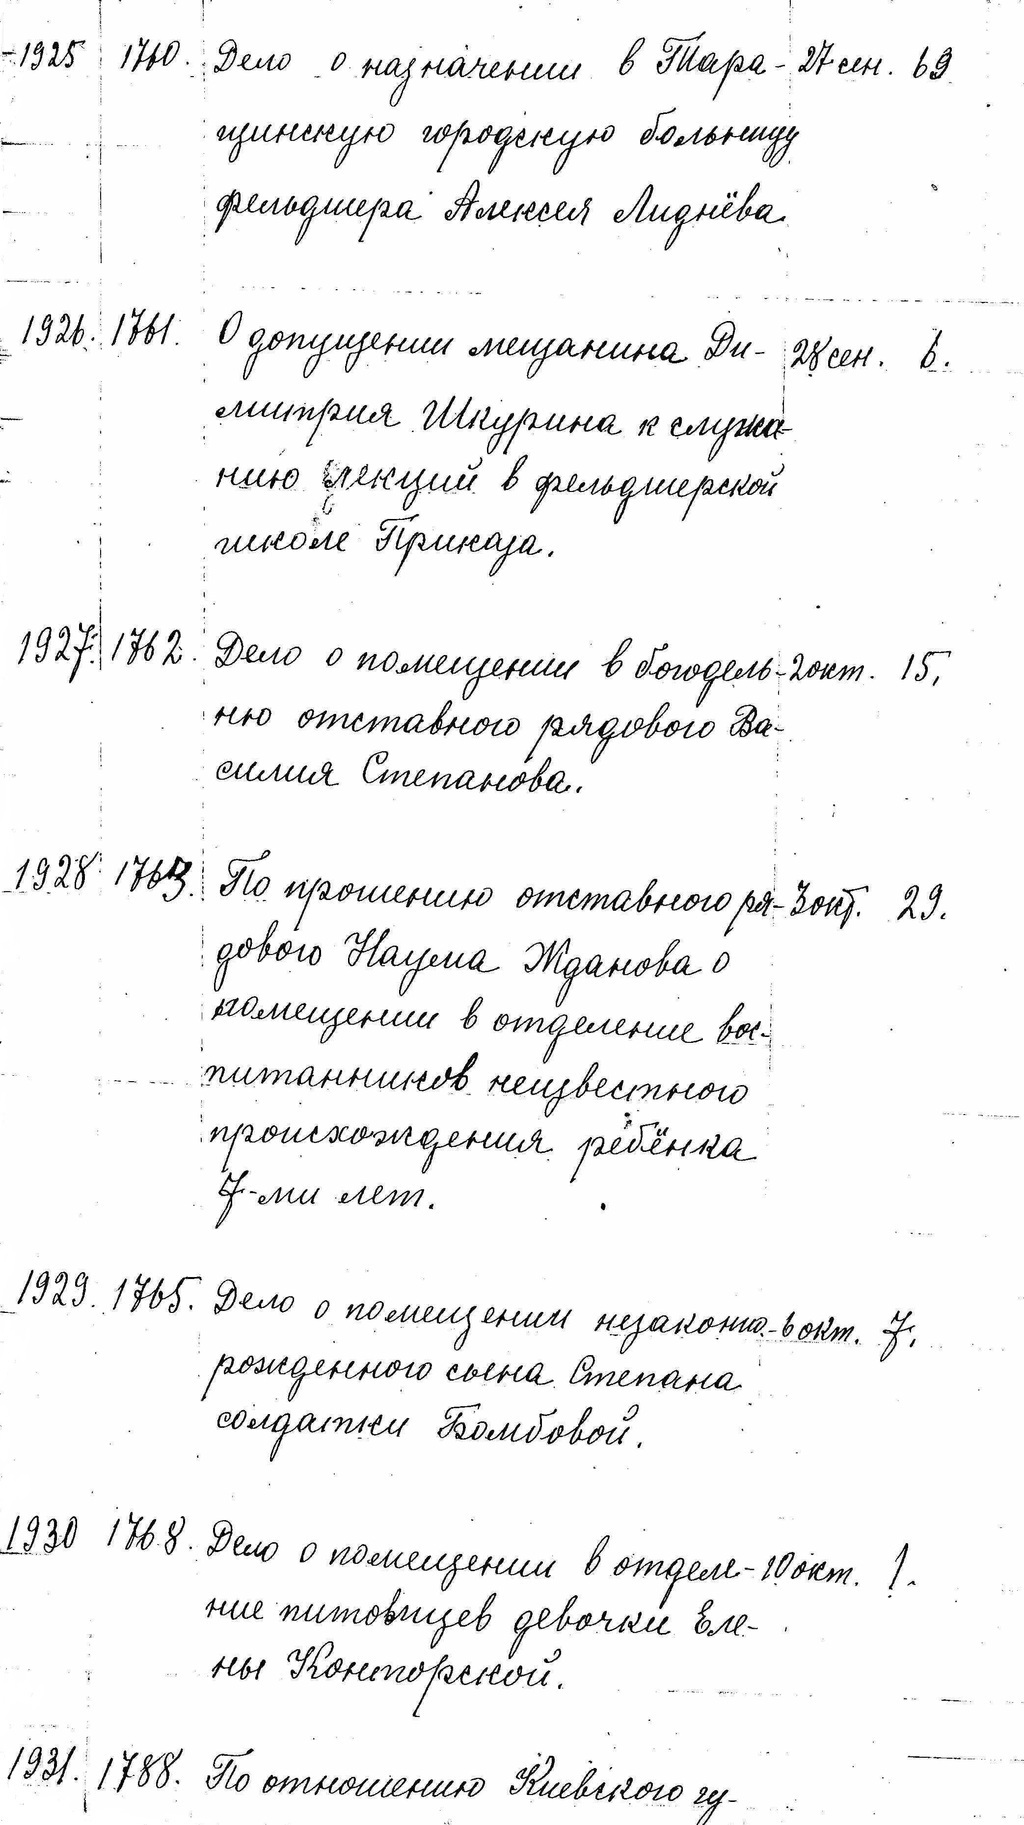 1925 1760. Дело о назначении в Тара- 27 сен. 69
щинскую городскую больницу
фельдшера Алексея Лиднёва.
1926. 1761. О допущении мещанина Ди- 28 сен. 6.
митрия Шкурина к слуша-
нию лекций в фельдшерской
школе Приказа.
1927. 1762. Дело о помещении в богодель- 2 окт. 15.
ню отставного рядового Ва-
силия Степанова.
1928 1763. По прошению отставного ря- 3 окт. 29.
дового Наума Жданова о
помещении в отделение вос-
питанников неизвестного
происхождения ребёнка
7-ми лет.
1929. 1765. Дело о помещении незаконно- 6 окт. 7.
рожденного сына Степана
солдатки Бомбовой.
1930 1768. Дело о помещении в отделе- 10 окт. 1.
ние питомцев девочки Еле-
ны Конторской.
1931. 1788. По отношению Киевского гу-